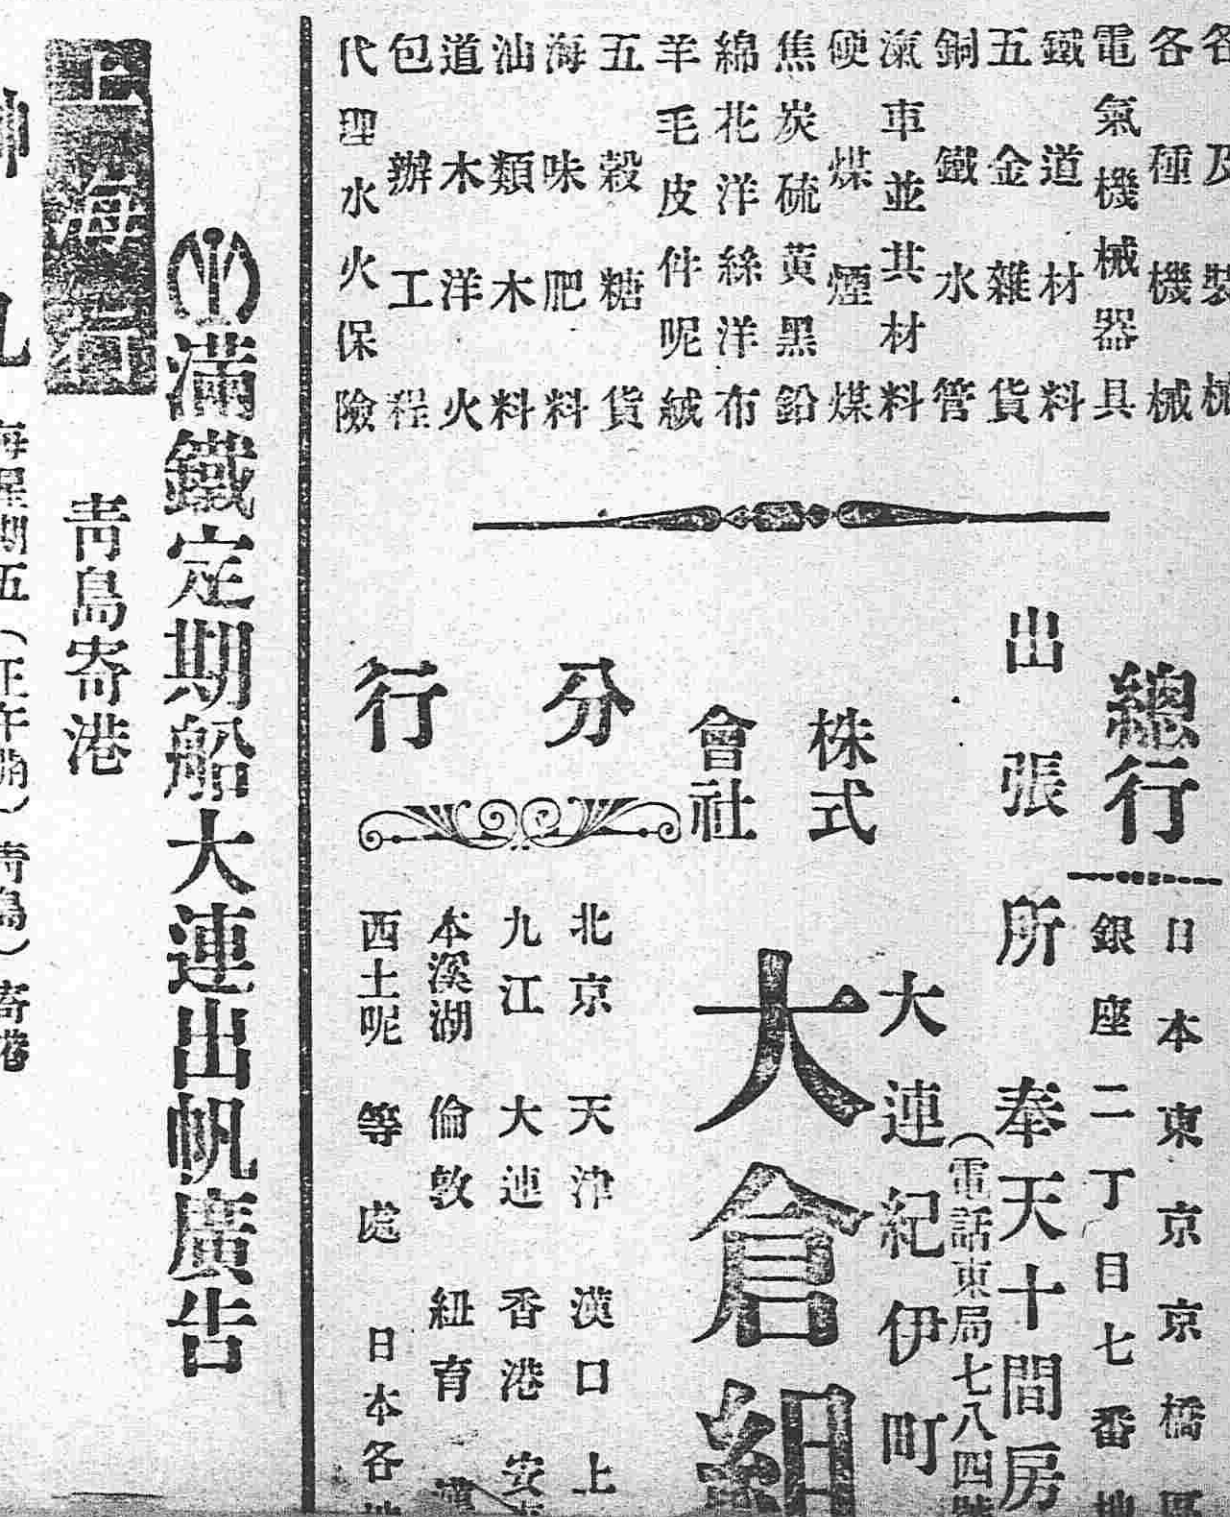 及裝械
各種機械
電氣機械器具
鐵道材料
五金雜貨
銅鐵水管
滊車並其材料
硬煤煙煤
焦炭硫黄黑鉛
綿花洋絲洋布
羊毛皮件呢絨
五穀糖貨
海味肥料
油類木料
道木洋火
包辦工程
代理水火保險
總行
日本東京京橋區
銀座二丁目七番地
出張所
奉天十間房
(電話東局七八四號
大連紀伊町
株式
會社
大倉組
分行
北京 天津 漢口 上
九江 大連 香港 安東
本溪湖 倫敦 紐育 漢
西土呢 等處 日本各地
滿鐵定期船大連出帆廣告
上海行
青島寄港
神 丸 每星期五(正午離)靑島)寄港